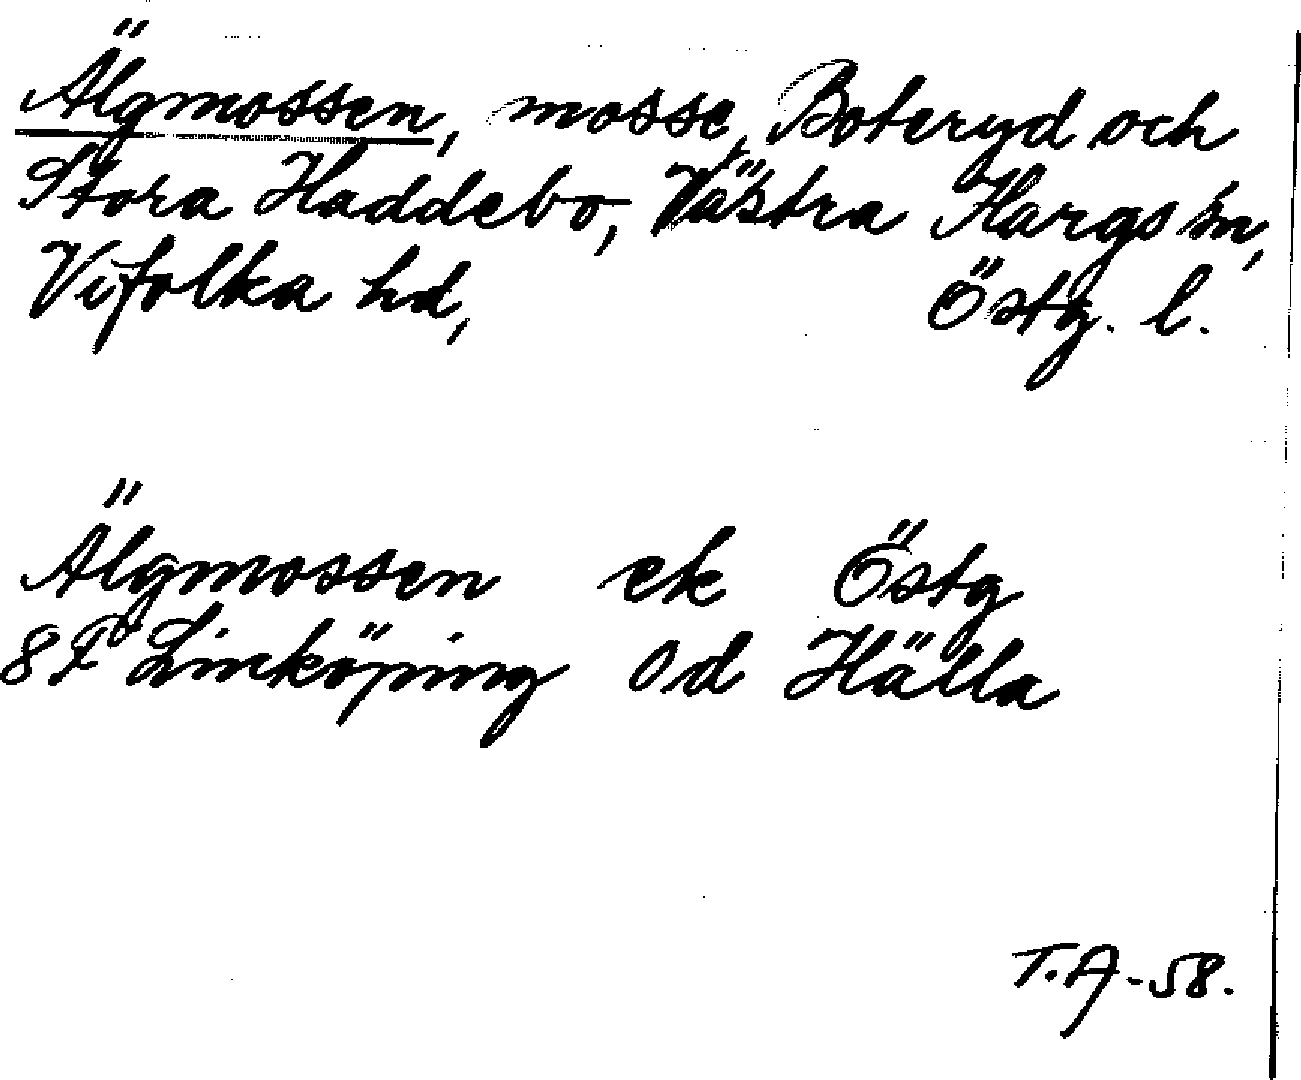 Älgmossen, mosse, Boteryd och
Stora Haddebo, Västra Hargs sn,
Vifolka hd, Östg. l.
Älgmossen ek Östg
8F Linköping Od Hälla
T.A-58.